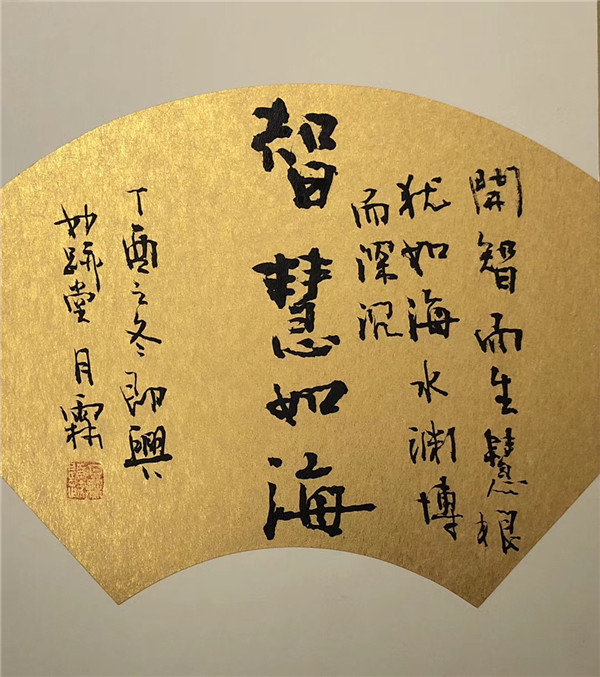 開智而生慧根
犹如海水渊博
而深沉
智慧如海
丁酉之冬即興
妙跡堂月霖